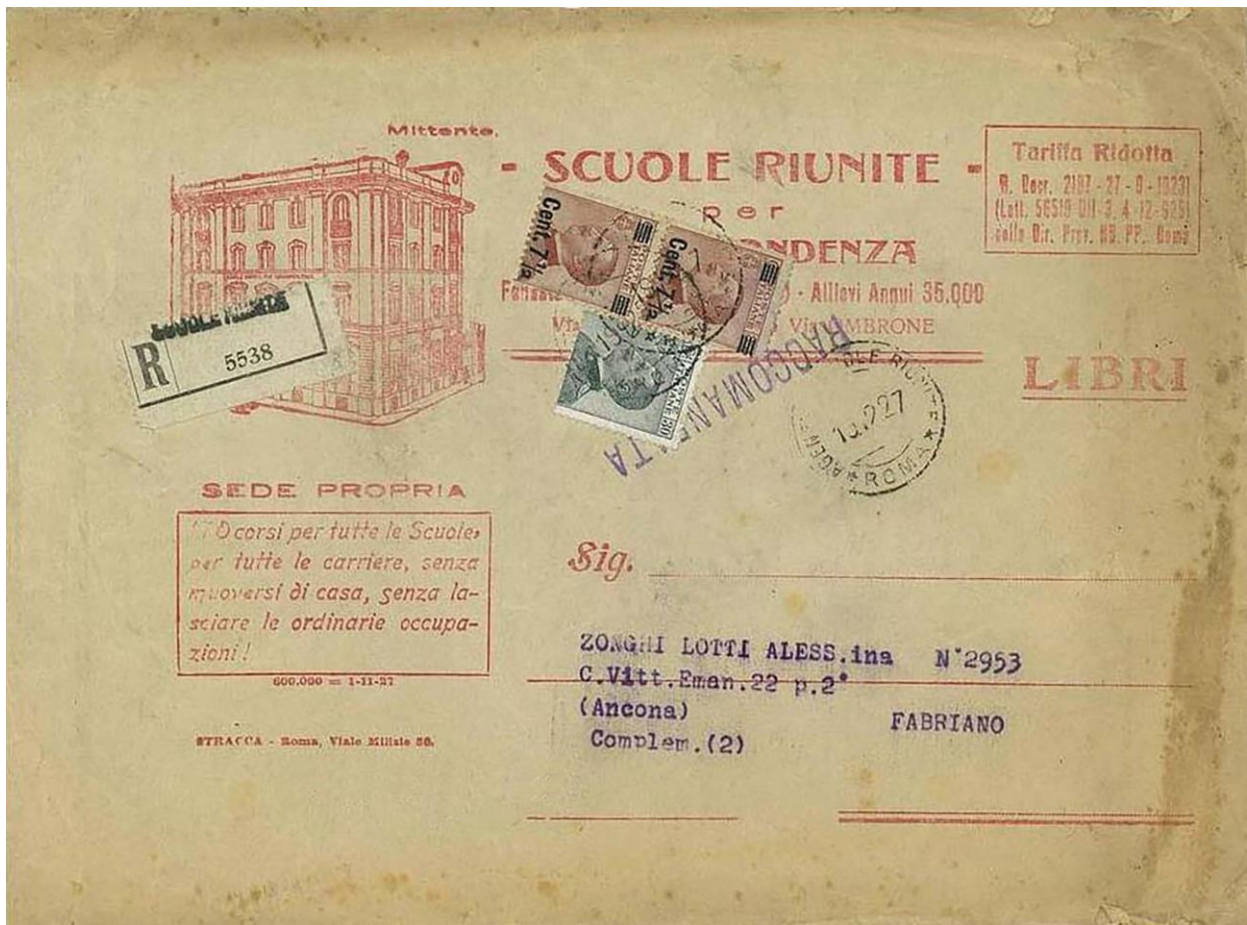 Mittente.
- SCUOLE RIUNITE -
per
ONDENZA
Allievi Annui 35.000
Via OMBRONE
Tariffa Ridotta
R. Decr. 2187 - 27 - 9 - 1923
Roma
LIBRI
Cent. 7½
Cent. 7½
30
RACCOMANDATA
SCUOLE RIUNITE
R
5538
OLE RIUNITE
27
AGEN
★ ROMA ★
SEDE PROPRIA
corsi per tutte le Scuole,
per tutte le carriere, senza
muoversi di casa, senza la-
sciare le ordinarie occupa-
zioni!
600.000 = 1-11-27
STRACCA - Roma, Viale Milizie 86.
Sig.
ZONGHI LOTTI ALESS.ina N°2953
C.Vitt.Eman.22 p.2°
(Ancona) FABRIANO
Complem.(2)